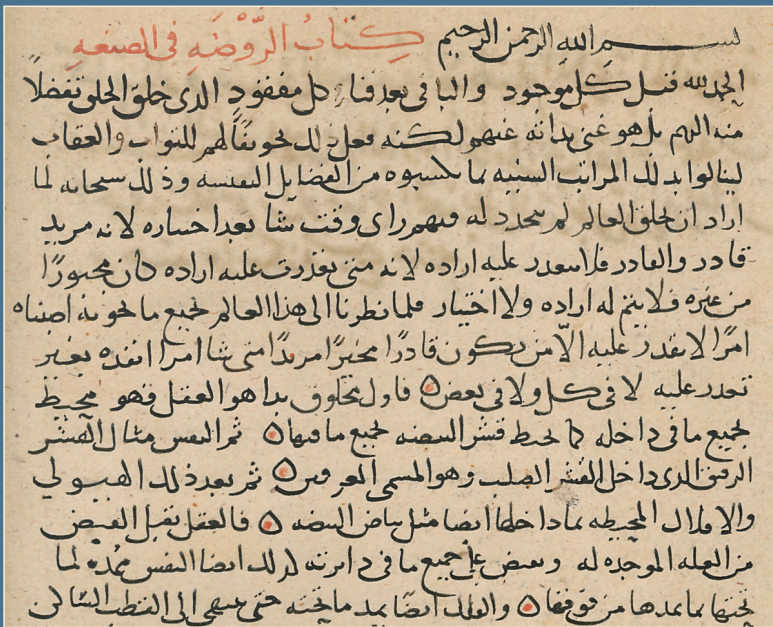 بسم الله الرحمن الرحيم كتاب الروضه فى الصنعه
الحمد لله قبل كل موجود والباقى بعد فناء كل مفقود الذى خلق الخلق تفضلاً
منه اليهم بل هو غنى بذاته عنهم ولكنه فعل ذلك لهم للثواب والعقاب
لينالوا بذلك المراتب السنيه بما يكسبوه من الفضايل النفسيه وذلك سبحانه لما
اراد ان يخلق العالم لم يتجدد له فيهم راى وقت شا بعد اختياره لانه مريد
قادر والقادر فلا يتعدر عليه اراده لانه متى تعدرت عليه اراده كان مجبورًا
من غيره فلا يتم له اراده ولا اختيار فلما نظرنا الى هذا العالم بجميع ما يحويه اصبناه
امرًا لا يقدر عليه الّا من يكون قادرًا مخيرًا مريدًا متى شا امرا انفده بغير
تعدر عليه لا فى كل ولا فى بعض فاول مخلوق بدا هو العقل فهو محيط
بجميع ما فى داخله كما يحيط قشر البيضه بجميع ما فيها ثم النفس مثال القشر
الرقيق الذى داخل القشر الصلب وهو المسمى ثم بعد ذلك الهيولي
والافلاك المحيطه بما داخلها ايضا مثل بياض البيضه فالعقل يقبل الفيض
من العله الموجده له ويفيض على جميع ما فى دايرته كذلك ايضا النفس ممده لما
تحتها بما يمدها من فوقها والفلك ايضًا يمد ما تحته حتى ينتهى الى القطب